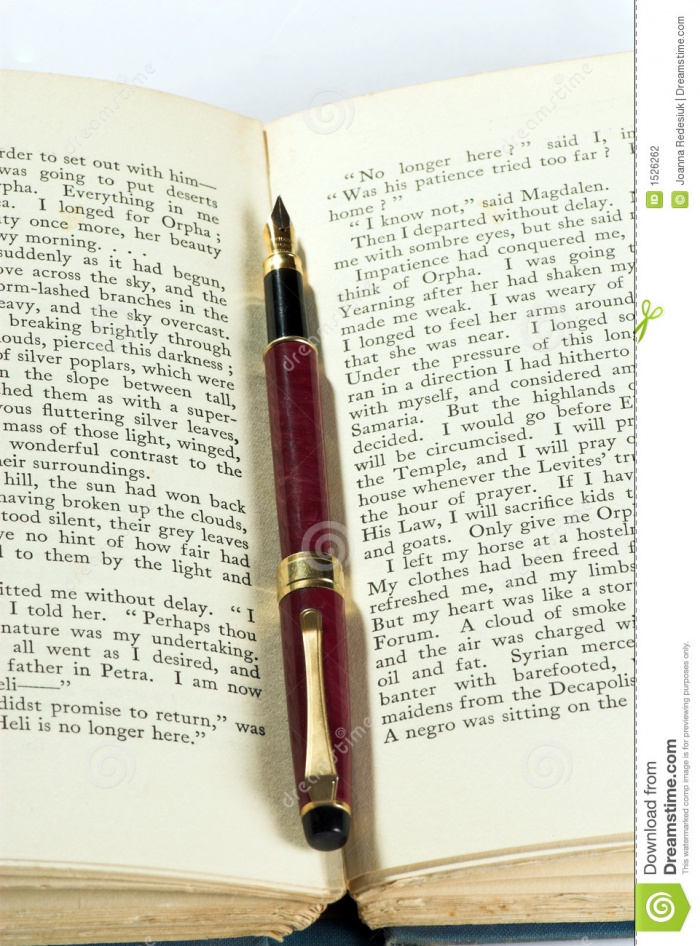 rder to set out with him—
was going to put deserts
rpha. Everything in me
a. I longed for Orpha;
ty once more, her beauty
wy morning. . . .
suddenly as it had begun,
ove across the sky, and the
orm-lashed branches in the
eavy, and the sky overcast.
breaking brightly through
louds, pierced this darkness;
of silver poplars, which were
n the slope between tall,
hed them as with a super-
vous fluttering silver leaves,
mass of those light, winged,
wonderful contrast to the
heir surroundings.
hill, the sun had won back
having broken up the clouds,
tood silent, their grey leaves
ve no hint of how fair had
l to them by the light and
itted me without delay. “I
I told her. “Perhaps thou
nature was my undertaking.
all went as I desired, and
father in Petra. I am now
eli——”
didst promise to return,” was
Heli is no longer here.”
“No longer here?” said I, in
“Was his patience tried too far?
home?”
“I know not,” said Magdalen.
Then I departed without delay.
me with sombre eyes, but she said
Impatience had conquered me,
think of Orpha. I was going t
Yearning after her had shaken my
made me weak. I was weary of
I longed to feel her arms around
that she was near. I longed so
Under the pressure of this lon
ran in a direction I had hitherto
with myself, and considered am
Samaria. But the highlands o
decided. I would go before E
will be circumcised. I will pr
the Temple, and I will pray
house whenever the Levites’ tr
the hour of prayer. If I hav
His Law, I will sacrifice kids t
and goats. Only give me Orp
I left my horse at a hosteln
My clothes had been freed f
refreshed me, and my limbs
But my heart was like a stor
Forum. A cloud of smoke
and the air was charged wi
oil and fat. Syrian merce
banter with barefooted,
maidens from the Decapolis
A negro was sitting on the
dreamstime
ID 1526262
© Joanna Redesiuk | Dreamstime.com
Download from
Dreamstime.com
This watermarked comp image is for previewing purposes only.